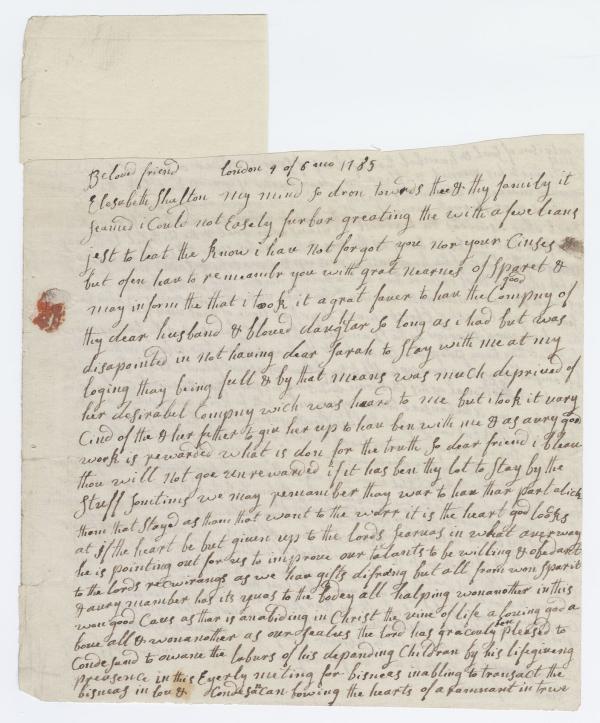 Beloved friend London 9 of 6 mo 1785
Elesabeth Shalton my mind so dron towards thee & thy family it
seamed i Could not Easely furbar greating the with a few leans
jest to leat the know i hau not forgot you nor your Cinses &
but ofen hau to remeambr you with grat nearnes of Sparet &
may in form the that i took it a grat faver to hau the good Compny of
thy dear husband & bloved daughtar so long as i had but was
disapointed in not having dear Sarah to Stay with me at my
loging thay being full & by that means was much deprived of
her desirabel Compny wich was heard to me but i took it vary
Cind of the & her father to giu her up to hau ben with me & as avry good
work is rewarded what is don for the truth so dear friend i bleau
thou will not goe unrewarded if it has ben thy lot to Stay by the
Stuff Somtims we may remamber thay war to hau thar part alick
tham that Stayed as tham that want to the warr it is the heart god looks
at if the heart be but given up to the lords searuas in what averway
he is pointing out for us to improve our talants to be willing & obedant
to the lords requirangs as we hau gifts difrang but all from won Sparit
& avry mamber has its yuas to the bodey all halping wonanother in this
won good Caus as thar is an abiding in Christ the vine of life a loving god a
boue all & wonanother as ourSealues the lord has graciously ben pleased to
Condesand to owane the laburs of his depanding Children by his lifegiveng
presence in this Eyerly meting for bisneas inabling to transact the
bisneas in lou & Condesan Can bowing the hearts of a ramnant in trwe